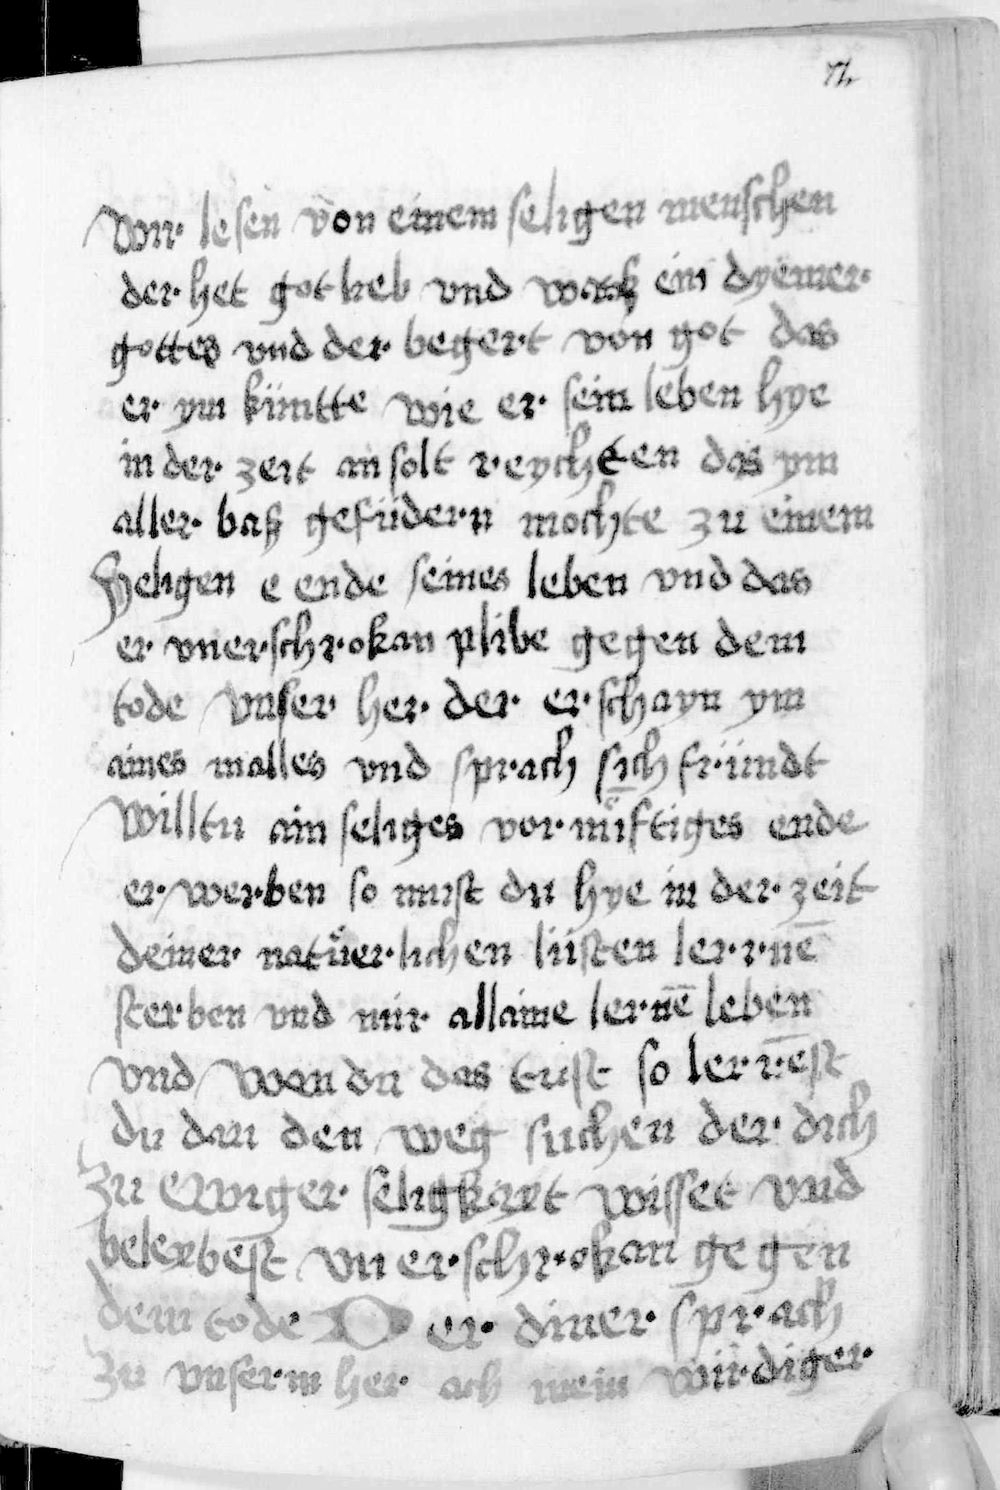 wir lesen von einem seligen menschen
der het got lieb vnd waß ein dyener
gottes vnd der begert von got das
er ym küntte wie er sein leben hye
in der zeit an solt reychten das ym
aller baß gefüdern mochte zu einem
heligen e ende seines leben vnd das
er vnerschrokan plibe gegen dem
tode vnser her der erschayn ym
aines malles vnd sprach sich fründt
willtu ain seliges vornüftiges ende
erwerben so must du hye in der zeit
deiner natüerlichen lüsten lerrnē
sterben vnd mir allaine lernē leben
vnd wan du das tust so lerrēst
du dan den weg suchen der dich
zu ewiger seligkayt wisset vnd
beleybest vnerschrokan gegen
dem tode er diner sprach
zu vnserm her ach mein würdiger